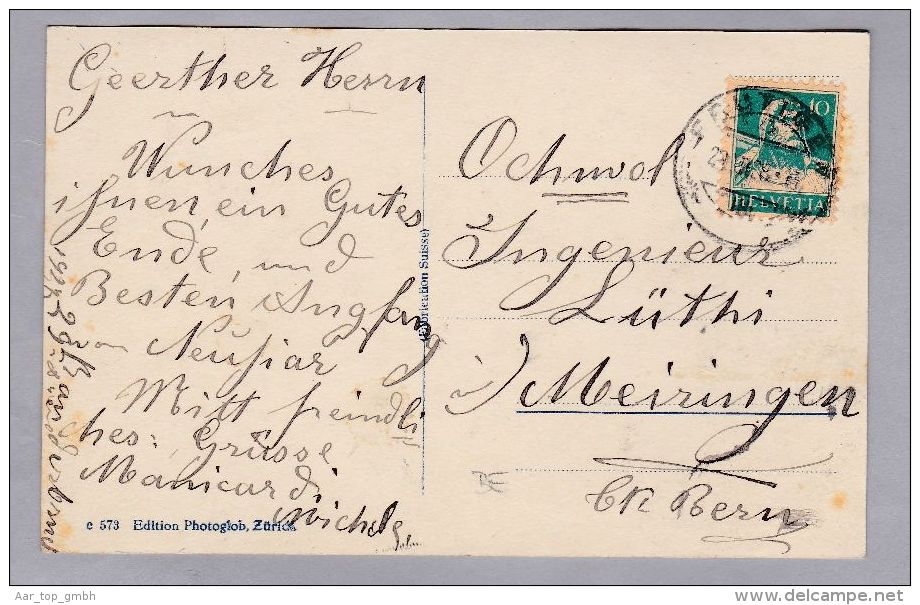 Geerther Herrn
Wunches
ihnen, ein Gutes
Ende, und
Besten Angfang
Neujiar
Mitt freindli
ches: Grüsse
Manicardi
Michele
Ochwol
Ingenieur
Lüthi
in) Meiringen
Ck Bern
10
HELVETIA
(Fabrication Suisse)
c 573 Edition Photoglob, Zürich
Aar_top_gmbh
www.delcampe.net